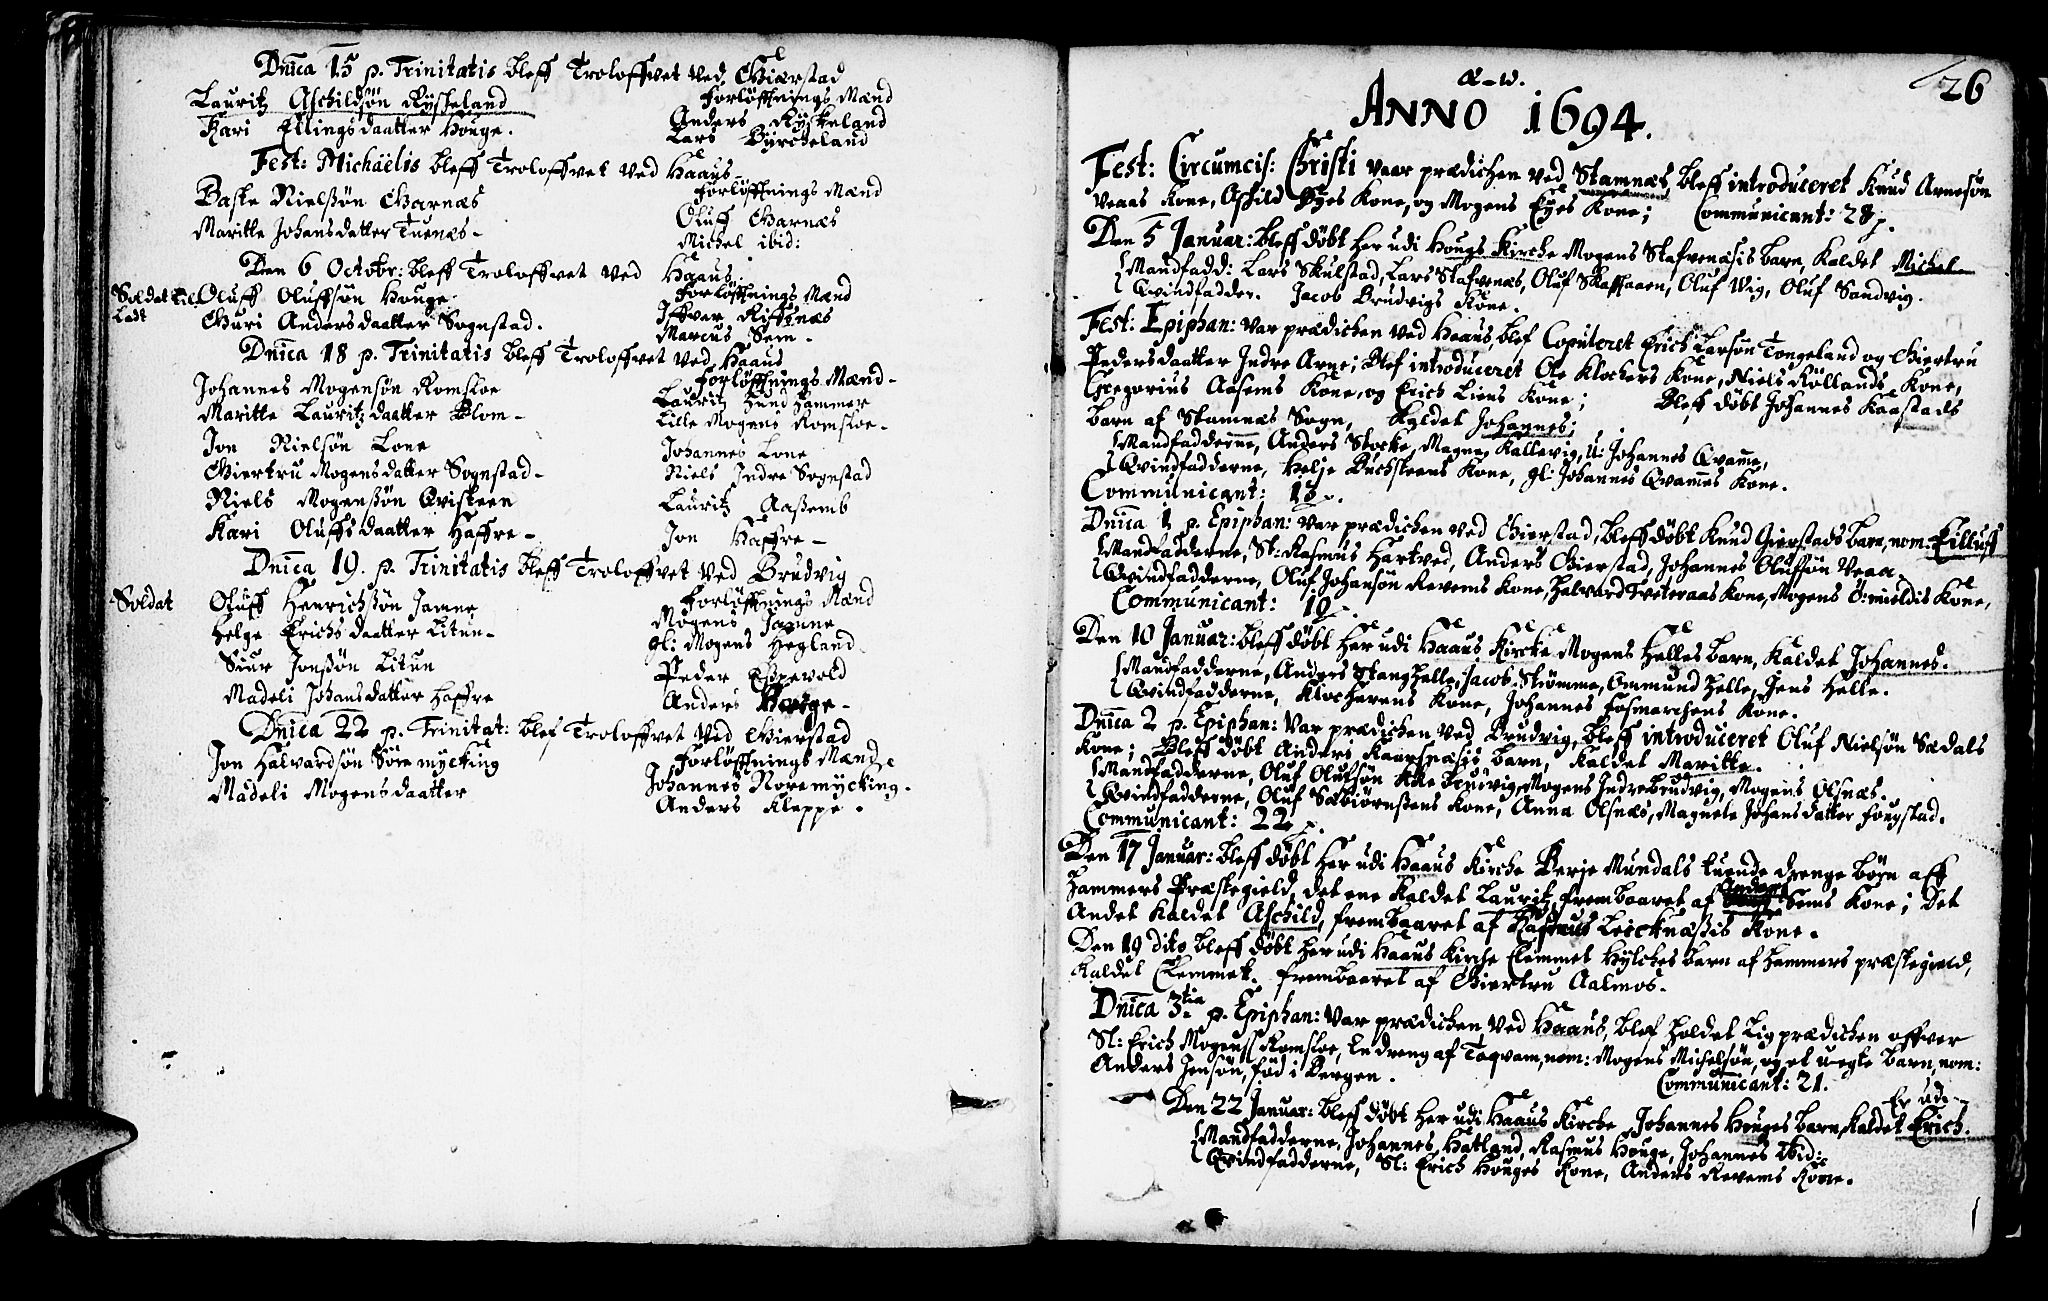 Dnica 15 p. Trinitatis bleff Troloffvet ved Gierstad
Lauritz Aschildsøn Rÿskeland
Forløffnings Mænd
Kari Ellingsdaatter Houge.
Anders Rÿskeland
Lars Bÿrckeland
Fest: Michaëlis bleff Troloffvet ved Haaus
Baste Nielssøn Garnæs
Forløffnings Mænd
Oluff Garnæs
Maritte Johansdatter Tuenæs
Michel ibid:
Den 6 Octobr: bleff Troloffvet ved Haaus.
Soldat til
Ladt
Oluff Oluffsøn Houge
Forløffnings Mænd
Iffver Riffsnæs
Guri Andersdaatter Sognstad.
Marcus Sem
Dnica 18 p. Trinitatis bleff Troloffvet ved Haaus
Forløffnings Mænd
Johannes Mogensøn Romsloe
Lauritz Hundhammer
Maritte Lauritzdaatter Blom
Lille Mogens Romsloe
Jon Nielsøn Lone
Johannes Lone
Giertru Mogensdatter Sognstad
Niels Indre Sognstad
Niels Mogenssøn Qvisteen
Lauritz Aassemb
Kari Oluffsdaatter Haffre
Jon Haffre
Dnica 19. p. Trinitatis bleff Troloffvet ved Brudvig
Soldat
Oluff Henrichssøn Jamne
Forløffnings Mænd
Mogens Jamne
Helge Erichsdaatter Litun
gl: Mogens Hegland
Siur Jonssøn Litun
Peder Espevold
Madeli Johansdatter Haffre
Anders
Dnica 22 p. Trinitat: blef Troloffvet ved Gierstad
Jon Halvardsøn Søremÿcking
Forløffnings Mænd
Johannes Noremÿcking.
Madeli Mogensdaatter
Anders Kleppe.
26
A-W.
ANNO 1694.
Fest: Circumcis: Christi vaar prædichen ved Stamnæs, bleff introduceret Knud Arnesøn
Veaas Kone, Askild Øÿes Kone, og Mogens Eÿes Kone; Communicant: 28.
Den 5 Januar: bleff døbt her udi Hougs Kirche Mogens Stafvenæsis barn, kaldet Michel
Mandfadd: Lars Skulstad, Lars Stafvenæs, Oluf Skafhaaen, Oluf Wig, Oluf Sandvig.
Qvindfadder. Jacob Brudvigs Kone.
Fest: Epiphan: var prædichen ved Haaus, blef Copuleret Erich Larsøn Tongeland og Giertru
Pedersdaatter Indre Arne; Blef introduceret Ole Klockers Kone, Niels Røllands Kone,
Gregorius Aasems Kone, og Erich Liens Kone; Bleff døbt Johannes Kaastads
barn af Stamnæs Sogn, kaldet Johannes;
Mandfadderne, Anders Storke, Magne Kallevig, u: Johannes Qvame,
Qvindfadderne, Helje Buchsteens Kone, gl: Johannes Qvames Kone.
Communicant: 18.
Dnica 1 p. Epiphan: var prædichen ved Gierstad, bleff døbt Knud Gierstads barn, nom: Eilluff
Mandfadderne, Sl: Rasmus Hartved, Anders Gierstad, Johannes Olufsøn Veaa
Qvindfadderne, Oluf Johansøn Revems Kone, Halvard Tveteraas Kone, Mogens Ømieldis Kone,
Communicant: 19.
Den 10 Januar: bleff døbt her udi Haaus Kirche Mogens Helles barn, kaldet Johannes.
Mandfadderne, Anders Stanghelle, Jacob Strømme, Ommund Helle, Jens Helle.
Qvindfadderne, Klocherens Kone, Johannes Fosmarchens Kone.
Dnica 2 p. Epiphan: var prædichen ved Brudvig, bleff introduceret Oluf Nielsøn Sædals
Kone; Bleff døbt Anders Kaarsnæsis barn, kaldet Maritte.
Mandfadderne, Oluf Olufsøn Ytre Brudvig, Mogens Indrebrudvig, Mogens Olsnæs.
Qvindfadderne, Oluf Sæbiørnsens Kone, Anna Olsnæs, Magnele Johansdatter Fougstad.
Communicant: 22.
Den 17 Januar: bleff døbt her udi Haaus Kirche Berje Mundals tuende drenge børn aff
Hammers Præstegield, det ene kaldet Lauritz, frembaaret af Anders Sems Kone; det
Andet kaldet Aschild, frembaaret af Rasmus Leicknæssis Kone.
Den 19 dito bleff døbt her udi Haaus Kirche Clemmet Hÿlches barn af Hammers præstegield,
kaldet Clemmet. frembaaret af Giertru Aalmos.
Dnica 3tia p. Epiphan: var prædichen ved Haaus, blef holdet Ligprædichen offver
Sl: Erich Mogenss Romsloe, en dreng af Taqvam, nom: Mogens Michelsøn, og et uegte barn, nom:
Anders Jensøn, fød i Bergen.
Communicant: 21.
Den 22 Januar: bleff døbt her udi Haaus Kirche Johannes Houges barn, kaldet Erich.
Mandfadderne, Johannes Hatland, Rasmus Houge, Johannes ibid:
Qvindfadderne, Sl: Erich Houges Kone, Anders Revems Kone.